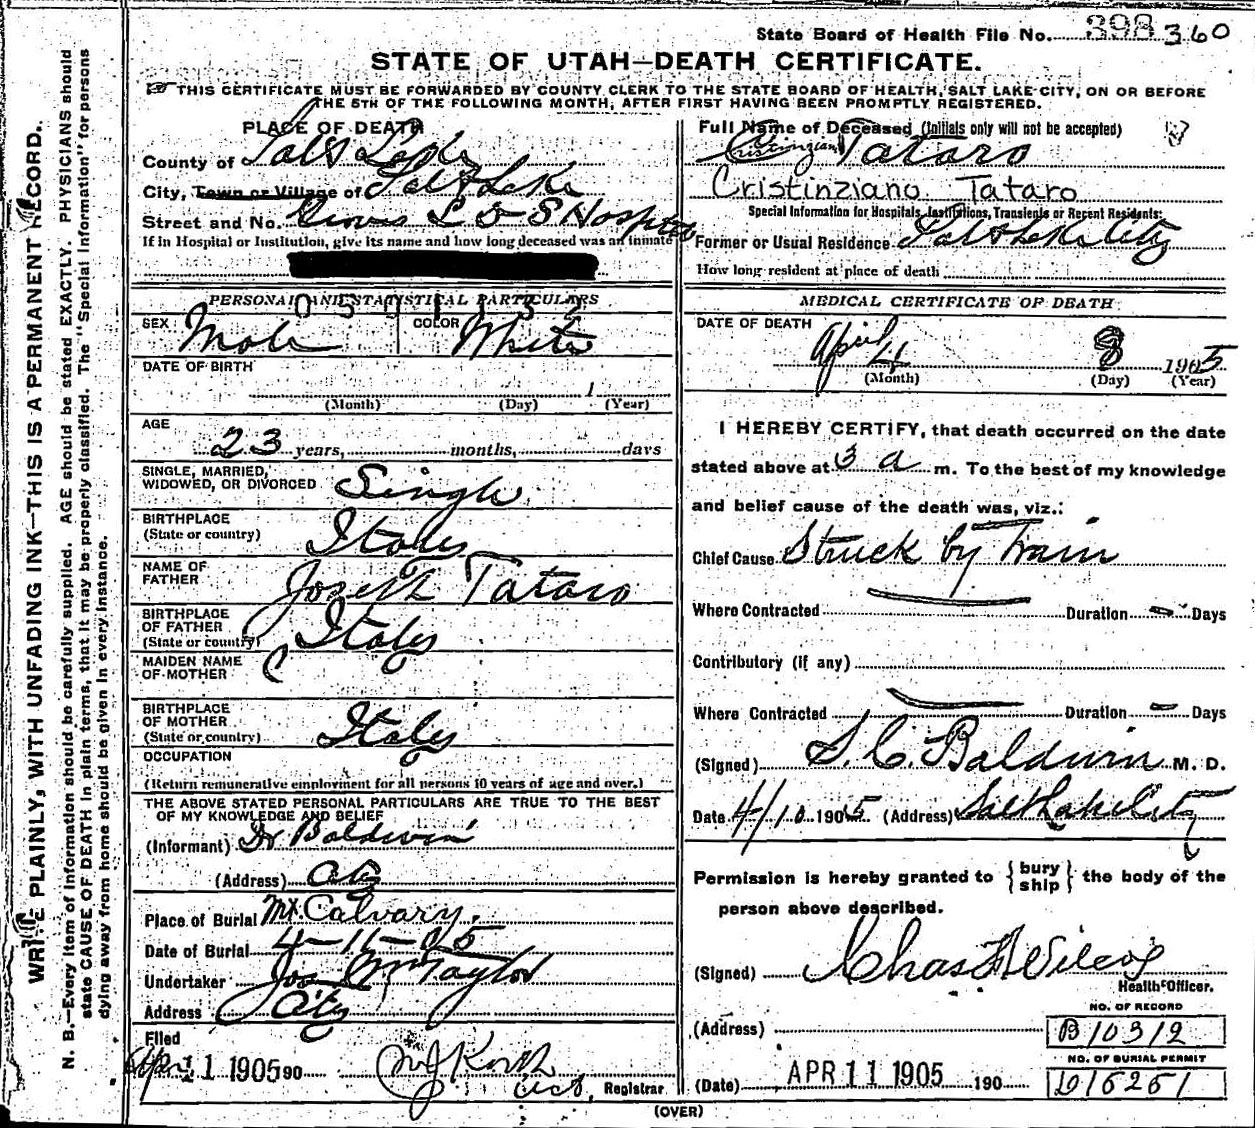 State Board of Health File No. 398 360
STATE OF UTAH—DEATH CERTIFICATE.
THIS CERTIFICATE MUST BE FORWARDED BY COUNTY CLERK TO THE STATE BOARD OF HEALTH, SALT LAKE CITY, ON OR BEFORE
THE 5TH OF THE FOLLOWING MONTH, AFTER FIRST HAVING BEEN PROMPTLY REGISTERED.
WRITE PLAINLY, WITH UNFADING INK—THIS IS A PERMANENT RECORD.
N. B.—Every item of information should be carefully supplied. AGE should be stated EXACTLY. PHYSICIANS should
state CAUSE OF DEATH in plain terms, that it may be properly classified. The "Special Information" for persons
dying away from home should be given in every instance.
PLACE OF DEATH
County of Salt Lake
City, Town or Village of Salt Lake
Street and No. Groves L D S Hospital
If in Hospital or Institution, give its name and how long deceased was an inmate
PERSONAL AND STATISTICAL PARTICULARS
SEX Male COLOR White
DATE OF BIRTH
1
(Month) (Day) (Year)
AGE
23 years, months, days
SINGLE, MARRIED,
WIDOWED, OR DIVORCED Single
BIRTHPLACE
(State or country) Italy
NAME OF
FATHER Joseph Tataro
BIRTHPLACE
OF FATHER
(State or country) Italy
MAIDEN NAME
OF MOTHER
BIRTHPLACE
OF MOTHER
(State or country) Italy
OCCUPATION
(Return remunerative employment for all persons 10 years of age and over.)
THE ABOVE STATED PERSONAL PARTICULARS ARE TRUE TO THE BEST
OF MY KNOWLEDGE AND BELIEF
(Informant) Dr Baldwin
(Address) City
Place of Burial Mt. Calvary.
Date of Burial 4-11-05
Undertaker Jos Wm Taylor
Address City
Filed
Apr 11 1905 90
Registrar
Full Name of Deceased (Initials only will not be accepted)
Cristinziano Tataro
Cristinziano Tataro
Special Information for Hospitals, Institutions, Transients or Recent Residents:
Former or Usual Residence Salt Lake City
How long resident at place of death
MEDICAL CERTIFICATE OF DEATH
DATE OF DEATH
April 4 8 1905
(Month) (Day) (Year)
I HEREBY CERTIFY, that death occurred on the date
stated above at 3 a m. To the best of my knowledge
and belief cause of the death was, viz.:
Chief Cause Struck by Train
Where Contracted Duration — Days
Contributory (if any)
Where Contracted Duration — Days
(Signed) S. C. Baldwin M. D.
Date 4/10 1905 (Address) Salt Lake City
Permission is hereby granted to { bury ship } the body of the
person above described.
(Signed) Chas F Wilcox
Health Officer.
NO. OF RECORD
(Address) B10312
NO. OF BURIAL PERMIT
(Date) APR 11 1905 190 D16251
(OVER)